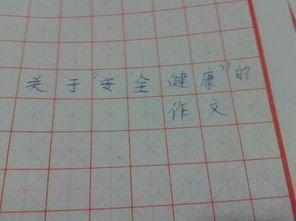 关于“安全健康”的
作文